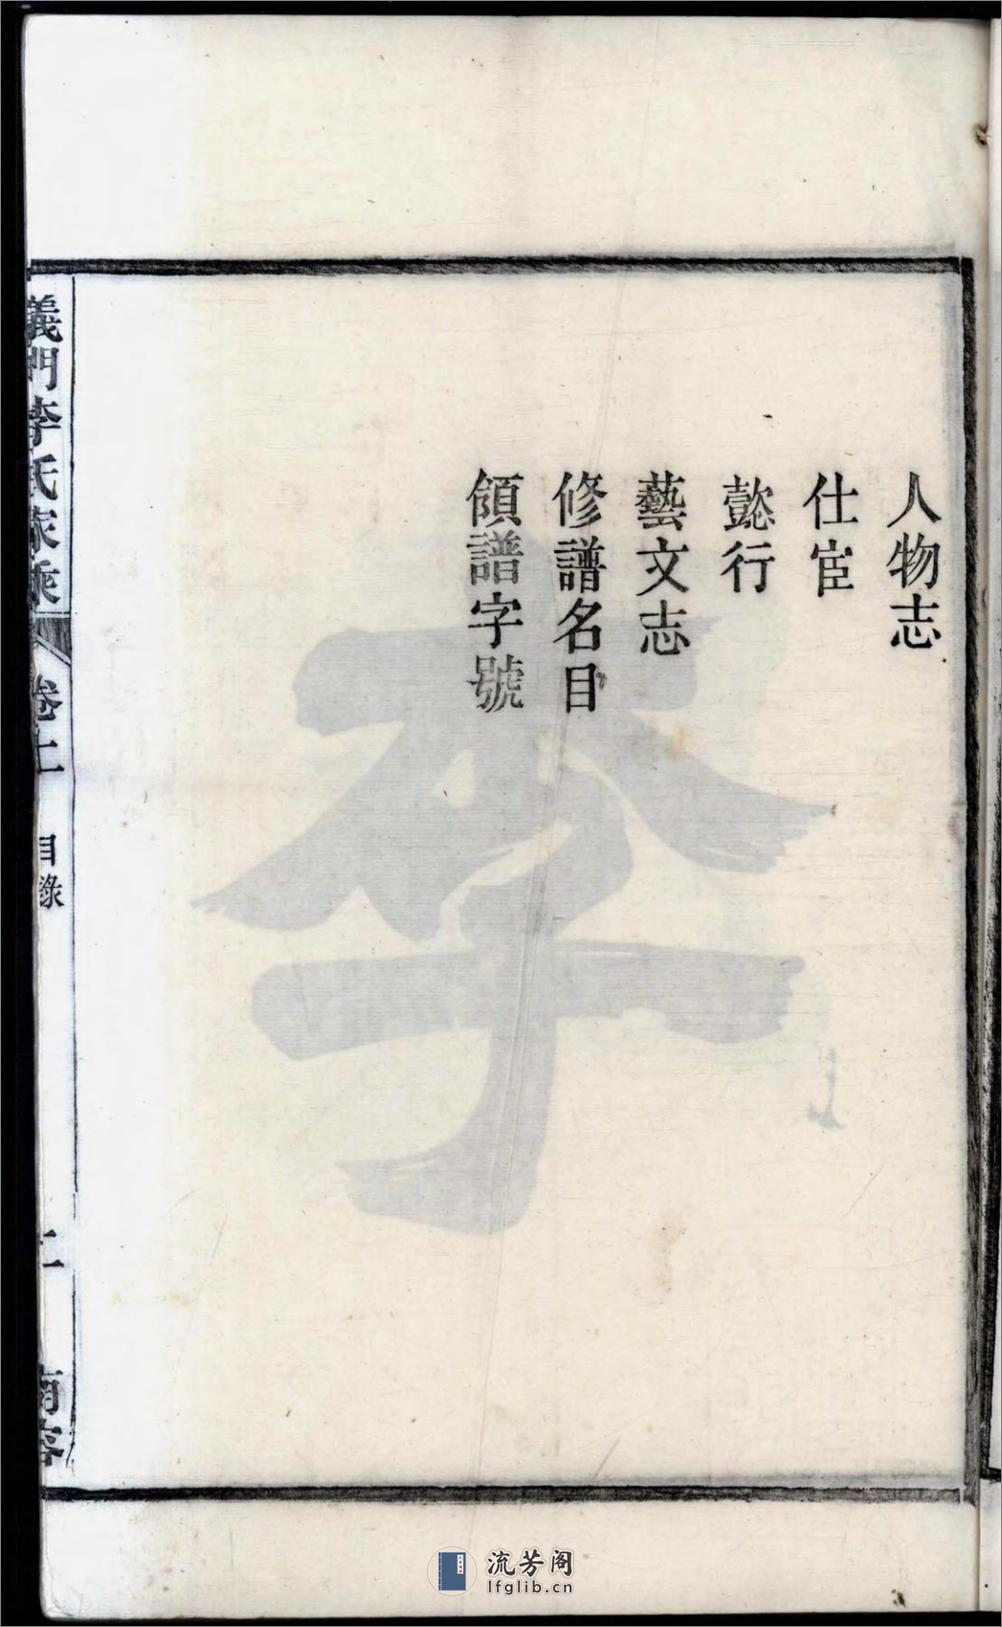 人物志
仕宦
懿行
藝文志
修譜名目
領譜字號
義門李氏家乘
卷十一
目錄
李
流芳阁
lfglib.cn